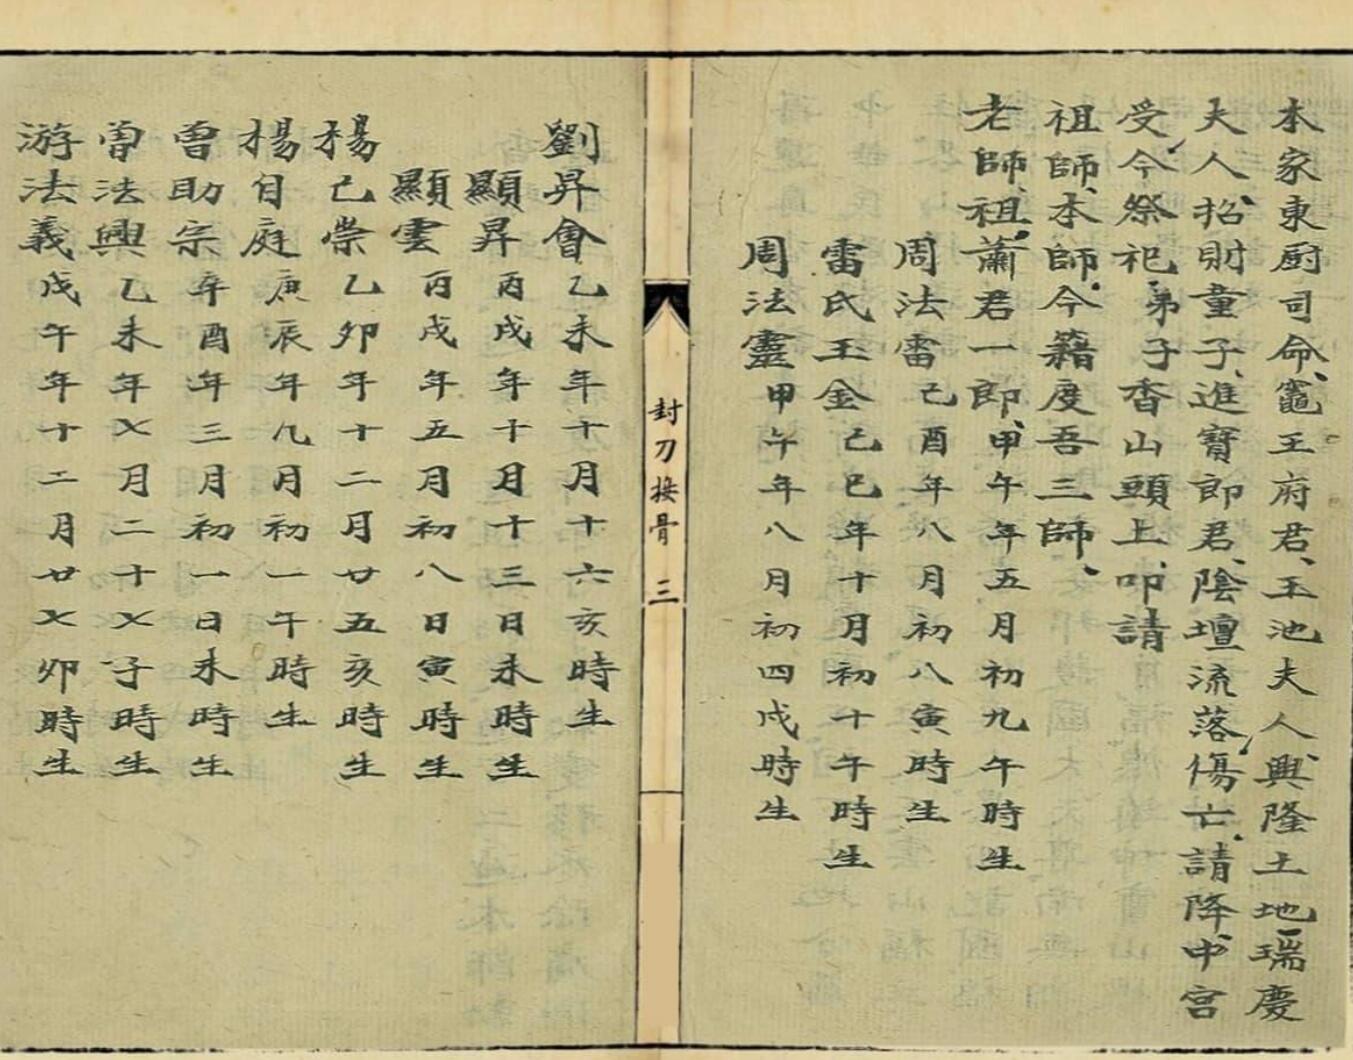 本家東厨司命、竈王府君、玉池夫人、興隆土地、瑞慶
夫人、招財童子、進寶郎君、陰壇流落傷亡、請降中宮
受今祭祀、弟子香山頭上、叩請
祖師、本師、今籍度吾三師、
老師、祖、蕭君一郎、甲午年五月初九午時生
周法雷己酉年八月初八寅時生
雷氏玉金己巳年十月初十午時生
周法靈甲午年八月初四戌時生
封刀接骨 三
劉昇會乙未年十月十六亥時生
顯昇丙戌年十月十三日未時生
顯雲丙戌年五月初八日寅時生
楊己崇乙卯年十二月廿五亥時生
楊月庭庚辰年九月初一午時生
曾助宗辛酉年三月初一日未時生
曾法興乙未年〤月二十〤子時生
游法義戊午年十二月廿〤卯時生